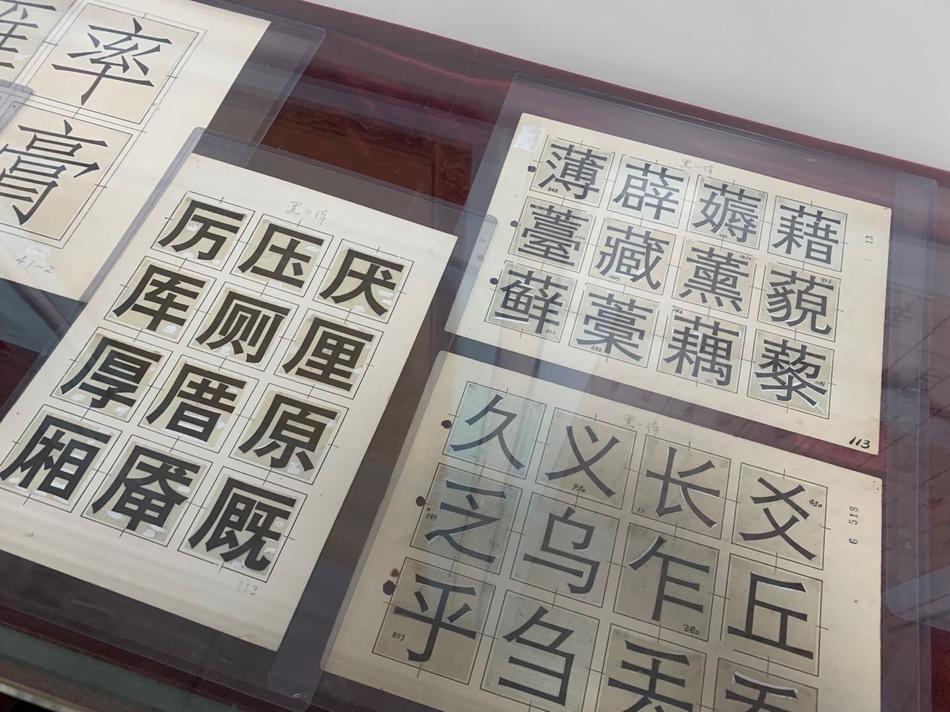 率
膏
41-2
黑二体
厉压厌
厍厕厘
厚厝原
厢厩
黑一体
薄薜薅藉
薹藏薰藐
藓藁藕藜
113
黑一体
久义长爻
乏乌乍丘
乎刍丢
6 518